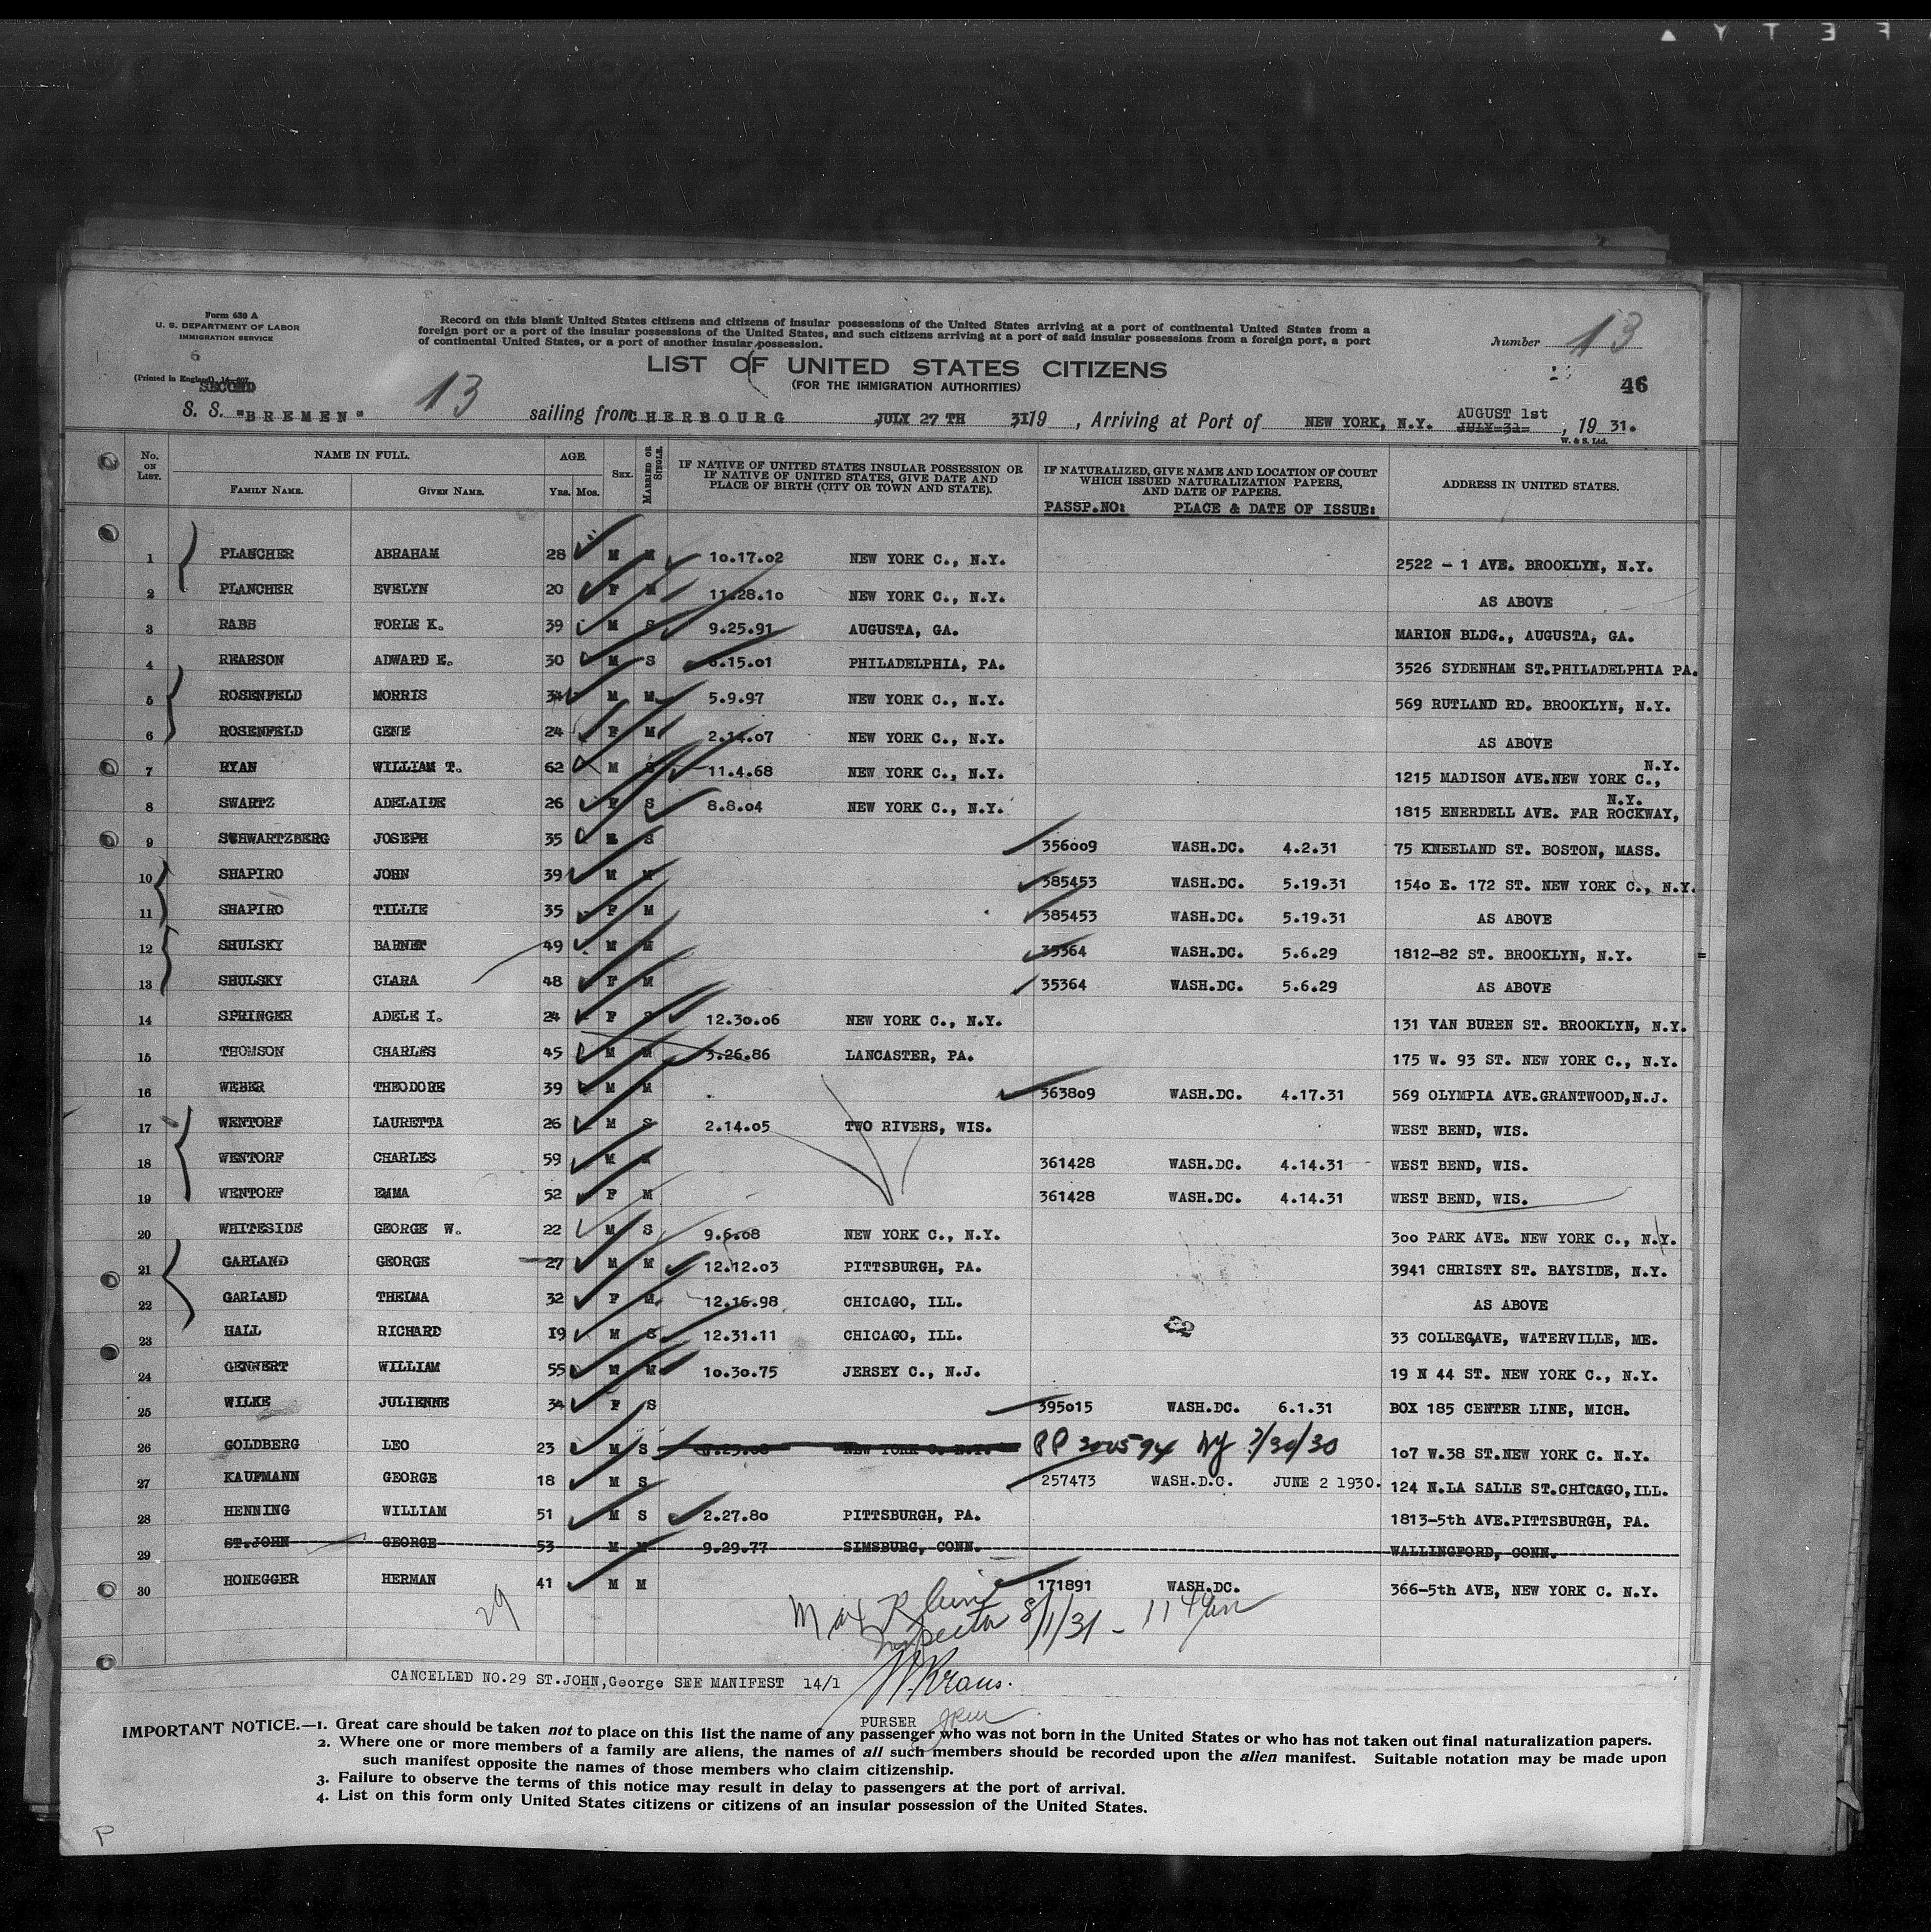 Form 630 A
U. S. DEPARTMENT OF LABOR
IMMIGRATION SERVICE
6
(Printed in England)
SECOND
Record on this blank United States citizens and citizens of insular possessions of the United States arriving at a port of continental United States from a
foreign port or a port of the insular possessions of the United States, and such citizens arriving at a port of said insular possessions from a foreign port, a port
of continental United States, or a port of another insular possession.
LIST OF UNITED STATES CITIZENS
(FOR THE IMMIGRATION AUTHORITIES)
Number 13
46
S. S. "BREMEN" 13 sailing from CHERBOURG JULY 27 TH 3119 , Arriving at Port of NEW YORK, N.Y. AUGUST 1st JULY 31 , 19 31.
W. & S. Ltd.
No. ON LIST. NAME IN FULL. AGE. SEX. MARRIED OR SINGLE. IF NATIVE OF UNITED STATES INSULAR POSSESSION OR IF NATIVE OF UNITED STATES, GIVE DATE AND PLACE OF BIRTH (CITY OR TOWN AND STATE). IF NATURALIZED, GIVE NAME AND LOCATION OF COURT WHICH ISSUED NATURALIZATION PAPERS, AND DATE OF PAPERS. ADDRESS IN UNITED STATES.
FAMILY NAME. GIVEN NAME. Yrs. Mos. PASSP.NO: PLACE & DATE OF ISSUE:
1 PLANCHER ABRAHAM 28 M M 10.17.02 NEW YORK C., N.Y. 2522 - 1 AVE. BROOKLYN, N.Y.
2 PLANCHER EVELYN 20 F M 11.28.10 NEW YORK C., N.Y. AS ABOVE
3 RABB FORLE K. 39 M S 9.25.91 AUGUSTA, GA. MARION BLDG., AUGUSTA, GA.
4 REARSON ADWARD E. 30 M S 6.15.01 PHILADELPHIA, PA. 3526 SYDENHAM ST.PHILADELPHIA PA.
5 ROSENFELD MORRIS 34 M M 5.9.97 NEW YORK C., N.Y. 569 RUTLAND RD. BROOKLYN, N.Y.
6 ROSENFELD GENE 24 F M 2.14.07 NEW YORK C., N.Y. AS ABOVE
7 RYAN WILLIAM T. 62 M S 11.4.68 NEW YORK C., N.Y. 1215 MADISON AVE.NEW YORK C., N.Y.
8 SWARTZ ADELAIDE 26 F S 8.8.04 NEW YORK C., N.Y. 1815 ENERDELL AVE. FAR ROCKWAY, N.Y.
9 SCHWARTZBERG JOSEPH 35 S 356009 WASH.DC. 4.2.31 75 KNEELAND ST. BOSTON, MASS.
10 SHAPIRO JOHN 39 M M 385453 WASH.DC. 5.19.31 1540 E. 172 ST. NEW YORK C., N.Y.
11 SHAPIRO TILLIE 35 F M 385453 WASH.DC. 5.19.31 AS ABOVE
12 SHULSKY BARNET 49 M M 35364 WASH.DC. 5.6.29 1812-82 ST. BROOKLYN, N.Y.
13 SHULSKY CLARA 48 F M 35364 WASH.DC. 5.6.29 AS ABOVE
14 SPRINGER ADELE I. 24 F S 12.30.06 NEW YORK C., N.Y. 131 VAN BUREN ST. BROOKLYN, N.Y.
15 THOMSON CHARLES 45 M M 3.26.86 LANCASTER, PA. 175 W. 93 ST. NEW YORK C., N.Y.
16 WEBER THEODORE 39 M M 363809 WASH.DC. 4.17.31 569 OLYMPIA AVE.GRANTWOOD,N.J.
17 WENTORF LAURETTA 26 M S 2.14.05 TWO RIVERS, WIS. WEST BEND, WIS.
18 WENTORF CHARLES 59 M M 361428 WASH.DC. 4.14.31 WEST BEND, WIS.
19 WENTORF EMMA 52 F M 361428 WASH.DC. 4.14.31 WEST BEND, WIS.
20 WHITESIDE GEORGE W. 22 M S 9.6.08 NEW YORK C., N.Y. 300 PARK AVE. NEW YORK C., N.Y.
21 GARLAND GEORGE 27 M M 12.12.03 PITTSBURGH, PA. 3941 CHRISTY ST. BAYSIDE, N.Y.
22 GARLAND THELMA 32 F M 12.16.98 CHICAGO, ILL. AS ABOVE
23 HALL RICHARD 19 M S 12.31.11 CHICAGO, ILL. 33 COLLEG,AVE, WATERVILLE, ME.
24 GENNERT WILLIAM 55 M M 10.30.75 JERSEY C., N.J. 19 N 44 ST. NEW YORK C., N.Y.
25 WILKE JULIENNE 34 F S 395015 WASH.DC. 6.1.31 BOX 185 CENTER LINE, MICH.
26 GOLDBERG LEO 23 M S NEW YORK C. N.Y. PP NY 107 W.38 ST.NEW YORK C. N.Y.
27 KAUFMANN GEORGE 18 M S 257473 WASH.D.C. JUNE 2 1930. 124 N.LA SALLE ST.CHICAGO,ILL.
28 HENNING WILLIAM 51 M S 2.27.80 PITTSBURGH, PA. 1813-5th AVE.PITTSBURGH, PA.
29 ST.JOHN GEORGE 53 M M 9.29.77 SIMSBURG, CONN. WALLINGFORD, CONN.
30 HONEGGER HERMAN 41 M M 171891 WASH.DC. 366-5th AVE, NEW YORK C. N.Y.
29 Max
Inspector 8/1/31 -
CANCELLED NO.29 ST.JOHN,George SEE MANIFEST 14/1 W.Kraus.
PURSER
IMPORTANT NOTICE.—1. Great care should be taken not to place on this list the name of any passenger who was not born in the United States or who has not taken out final naturalization papers.
2. Where one or more members of a family are aliens, the names of all such members should be recorded upon the alien manifest. Suitable notation may be made upon
such manifest opposite the names of those members who claim citizenship.
3. Failure to observe the terms of this notice may result in delay to passengers at the port of arrival.
4. List on this form only United States citizens or citizens of an insular possession of the United States.
P